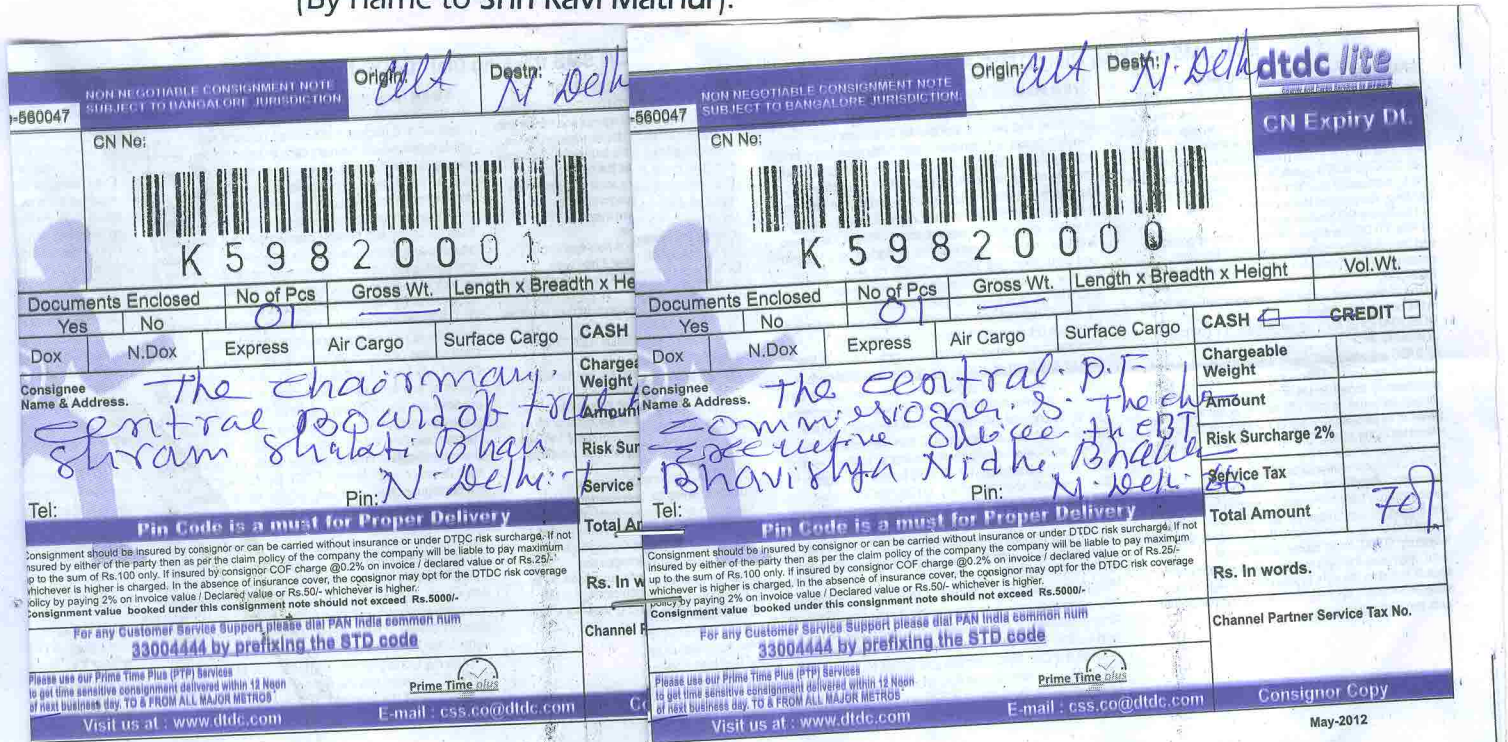 (By name to Shri Ravi Mathur).
-560047
NON NEGOTIABLE CONSIGNMENT NOTE
SUBJECT TO BANGALORE JURISDICTION
Origin:
Destn: N. Delh
CN No:
K59820001
Documents Enclosed No of Pcs Gross Wt. Length x Breadth x He
Yes No 01
Dox N.Dox Express Air Cargo Surface Cargo CASH
Consignee
Name & Address.
The Chairman.
Central Board of
Shram Shakti Bhan
N. Delhi-1
Tel: Pin:
Chargea
Weight
Amount
Risk Sur
Service
Total Am
Pin Code is a must for Proper Delivery
Consignment should be insured by consignor or can be carried without insurance or under DTDC risk surcharge. If not
insured by either of the party then as per the claim policy of the company the company will be liable to pay maximum
up to the sum of Rs.100 only. If insured by consignor COF charge @0.2% on invoice / declared value or of Rs.25/-
whichever is higher is charged. In the absence of insurance cover, the consignor may opt for the DTDC risk coverage
policy by paying 2% on invoice value / Declared value or Rs.50/- whichever is higher.
Consignment value booked under this consignment note should not exceed Rs.5000/-
Rs. In w
For any Customer Service Support please dial PAN India common num
33004444 by prefixing the STD code
Channel P
Please use our Prime Time Plus (PTP) Services
to get time sensitive consignment delivered within 12 Noon
of next business day. TO & FROM ALL MAJOR METROS
Prime Time plus
Visit us at : www.dtdc.com E-mail : css.co@dtdc.com Co
-560047
NON NEGOTIABLE CONSIGNMENT NOTE
SUBJECT TO BANGALORE JURISDICTION.
Origin:
Destn: N. Delh
dtdc lite
CN Expiry Dt.
CN No:
K59820000
Documents Enclosed No of Pcs Gross Wt. Length x Breadth x Height Vol.Wt.
Yes No 01
Dox N.Dox Express Air Cargo Surface Cargo CASH CREDIT
Consignee
Name & Address.
The Central. P.F
Commissioner. & The
Executive the CBT
Bhavishya Nidhi
N. Delhi-66
Tel: Pin:
Chargeable
Weight
Amount
Risk Surcharge 2%
Service Tax
Total Amount 70/
Pin Code is a must for Proper Delivery
Consignment should be insured by consignor or can be carried without insurance or under DTDC risk surcharge. If not
insured by either of the party then as per the claim policy of the company the company will be liable to pay maximum
up to the sum of Rs.100 only. If insured by consignor COF charge @0.2% on invoice / declared value or of Rs.25/-
whichever is higher is charged. In the absence of insurance cover, the consignor may opt for the DTDC risk coverage
policy by paying 2% on invoice value / Declared value or Rs.50/- whichever is higher.
Consignment value booked under this consignment note should not exceed Rs.5000/-
Rs. In words.
For any Customer Service Support please dial PAN India common num
33004444 by prefixing the STD code
Channel Partner Service Tax No.
Please use our Prime Time Plus (PTP) Services
to get time sensitive consignment delivered within 12 Noon
of next business day. TO & FROM ALL MAJOR METROS
Prime Time plus
Visit us at : www.dtdc.com E-mail : css.co@dtdc.com Consignor Copy
May-2012